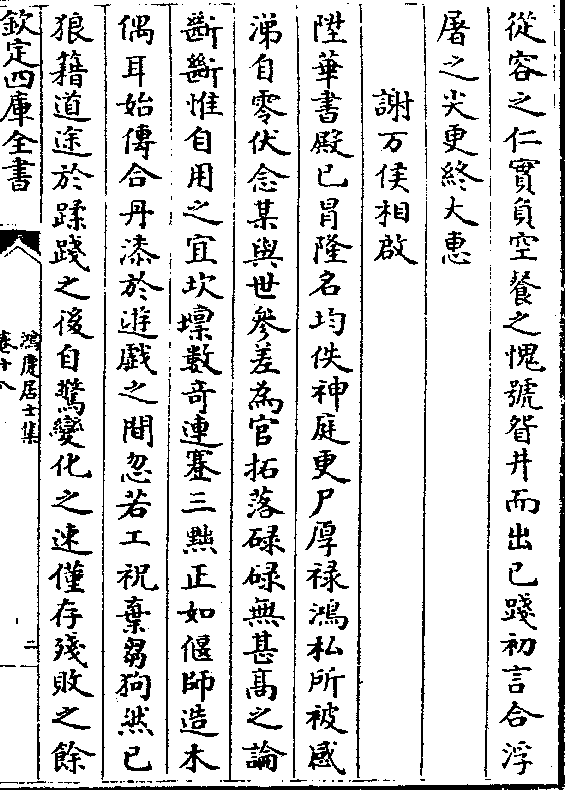 從容之仁實負空餐之愧號眢井而出已踐初言合浮
屠之尖更終大惠
謝万俟相啟
陞華書殿已冒隆名均佚神庭更尸厚祿鴻私所被感
涕自零伏念某與世參差為官拓落碌碌無甚高之論
斷斷惟自用之宜坎壈數奇連蹇三黜正如偃師造木
偶耳始傅合丹漆於遊戲之間忽若工祝棄芻狗然已
狼籍道途於蹂踐之後自驚變化之速僅存殘敗之餘
欽定四庫全書
鴻慶居士集
卷十八
二